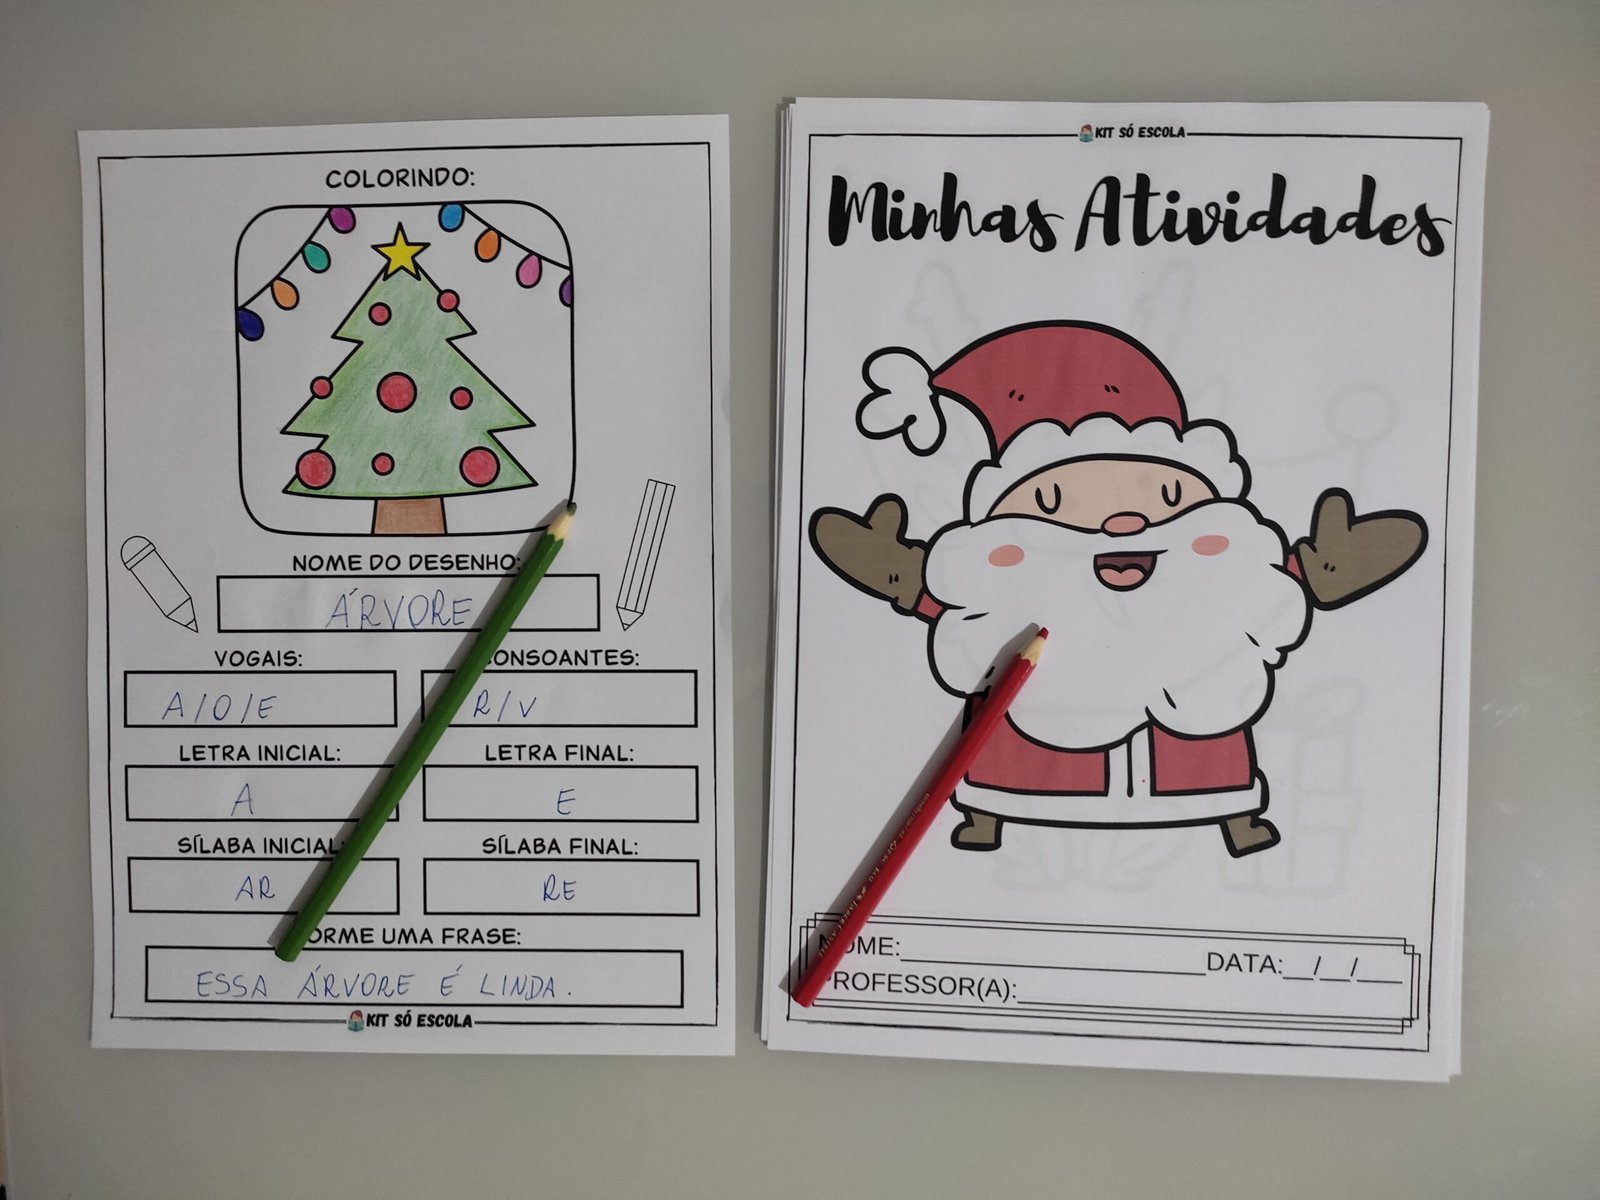 COLORINDO:
NOME DO DESENHO:
ÁRVORE
VOGAIS:
CONSOANTES:
A/O/E
R/V
LETRA INICIAL:
LETRA FINAL:
A
E
SÍLABA INICIAL:
SÍLABA FINAL:
AR
RE
FORME UMA FRASE:
ESSA ÁRVORE É LINDA.
KIT SÓ ESCOLA
KIT SÓ ESCOLA
Minhas Atividades
NOME:
DATA:__/__/___
PROFESSOR(A):